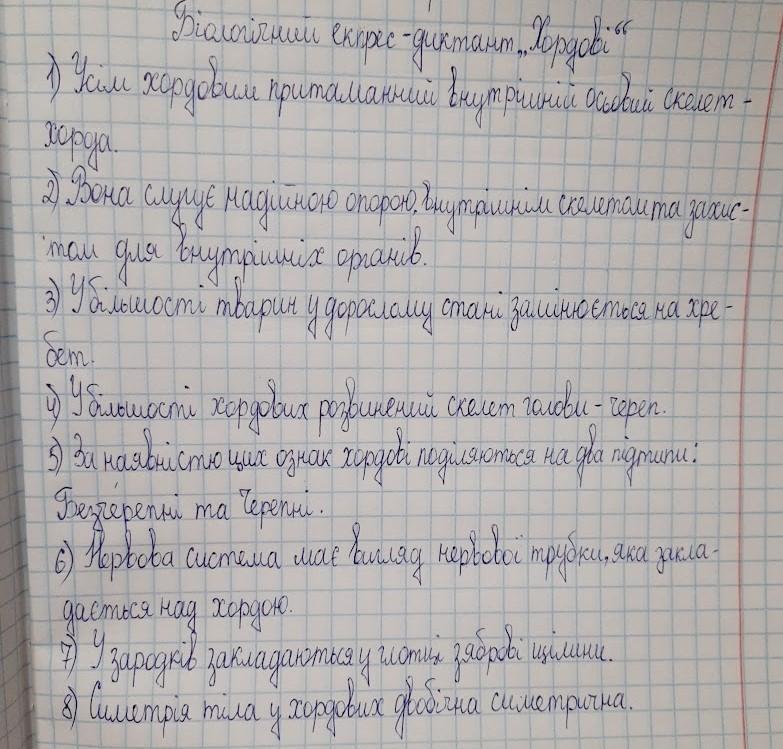 Біологічний експрес-диктант „Хордові“
1) Усім хордовим притаманний внутрішній осьовий скелет -
хорда.
2) Вона слугує надійною опорою, внутрішнім скелетом та захис-
том для внутрішніх органів.
3) У більшості тварин у дорослому стані замінюється на хре-
бет.
4) У більшості хордових розвинений скелет голови - череп.
5) За наявністю цих ознак хордові поділяються на два підтипи:
Безчерепні та Черепні.
6) Нервова система має вигляд нервової трубки, яка закла-
дається над хордою.
7) У зародків закладаються у глотці зяброві щілини.
8) Симетрія тіла у хордових двобічна симетрична.